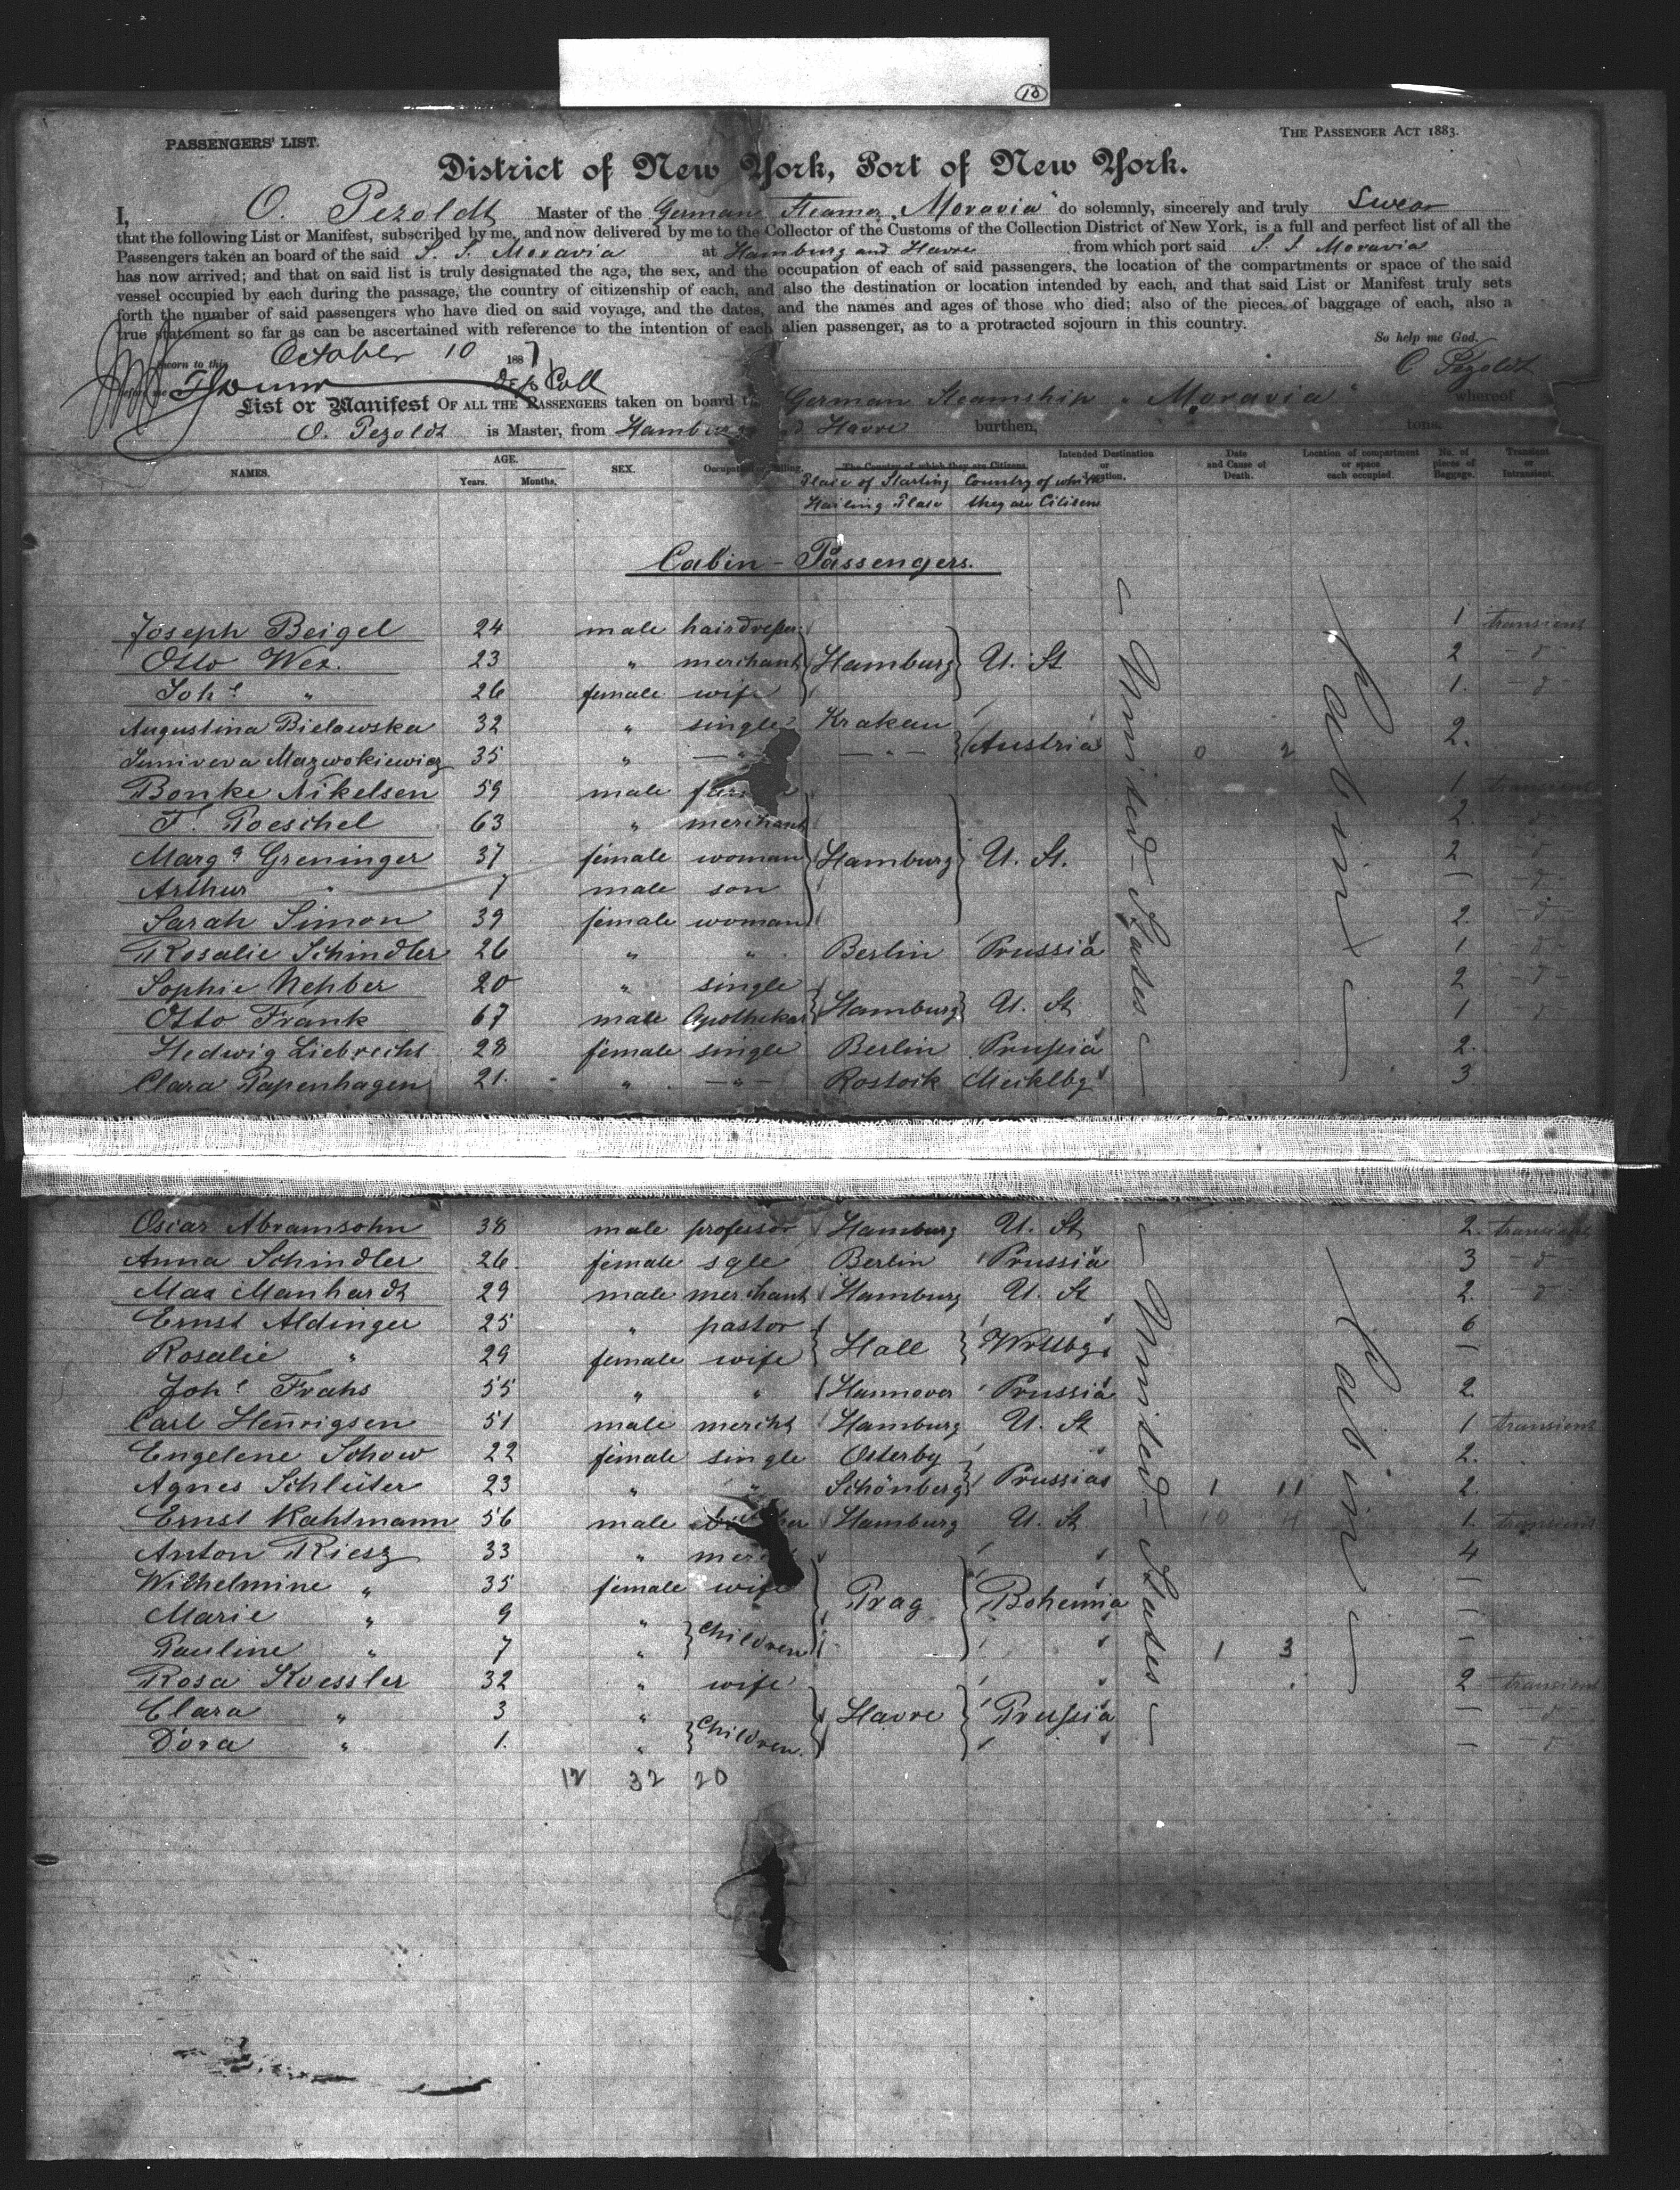 10
PASSENGERS' LIST.
THE PASSENGER ACT 1883.
District of New York, Port of New York.
I, O. Pezoldt Master of the German Steamer "Moravia" do solemnly, sincerely and truly Swear
that the following List or Manifest, subscribed by me, and now delivered by me to the Collector of the Customs of the Collection District of New York, is a full and perfect list of all the
Passengers taken an board of the said S. S. Moravia at Hamburg and Havre from which port said S. S. Moravia
has now arrived; and that on said list is truly designated the age, the sex, and the occupation of each of said passengers, the location of the compartments or space of the said
vessel occupied by each during the passage, the country of citizenship of each, and also the destination or location intended by each, and that said List or Manifest truly sets
forth the number of said passengers who have died on said voyage, and the dates, and the names and ages of those who died; also of the pieces of baggage of each, also a
true statement so far as can be ascertained with reference to the intention of each alien passenger, as to a protracted sojourn in this country.
So help me God.
Sworn to this October 10 1887
O Pezoldt
Dep Coll
List or Manifest OF ALL THE PASSENGERS taken on board the German Steamship "Moravia" whereof
O. Pezoldt is Master, from Hamburg and Havre burthen, tons.
NAMES. AGE. Years. Months. SEX. Occupation or Calling. The Country of which they are Citizens. Intended Destination or Location. Date and Cause of Death. Location of compartment or space each occupied. No. of pieces of Baggage. Transient or Intransient.
Place of Starting Country of which
Hailing Place they are Citizens
Cabin - Passengers.
Joseph Beigel 24 male hairdresser 1 transient
Otto Wex. 23 " merchant Hamburg U. St 2 - d -
Johe " 26 female wife 1. - d -
Augustina Bielawska 32 " single Krakau 2.
Mazwokiewicz 35 " - " - - " - Austria 0 2
Bonke Nikelsen 59 male 1 transient
F. Poeschel 63 " merchant 2. d
Marga Greninger 37 female woman Hamburg U. St. 2 d
Arthur " 7 male son — - d -
Sarah Simon 39 female woman 2. - d
Rosalie Schindler 26 " " Berlin Prussia 1 d
Sophie Nehber 20 " single 2 - d -
Otto Frank 67 male Apothekar Hamburg U. St 1 d
Hedwig Liebrecht 28 female single Berlin Prussia 2.
Clara Papenhagen 21. " - " - Rostock Mecklbg 3
— United States —
Cabin
Oscar Abramsohn 38 male professor Hamburg U. St 2. transient
Anna Schindler 26. female sgle Berlin Prussia 3 - d
Max Manhardt 29 male merchant Hamburg U. St 2. - d
Ernst Aldinger 25 " pastor 6
Rosalie " 29 female wife Hall Wrttbg. —
Johe Frahs 55 " " Hannover Prussia 2
Carl Henrigsen 51 male mercht Hamburg U. St 1 transient
Engelene Schow 22 female single Osterby 2.
Agnes Schlüter 23 " " Schönberg Prussia 1 11 2.
Ernst Kahlmann 56 male Hamburg U. St 10 4 1. transient
Anton Riesz 33 " 4
Wilhelmine " 35 female wife Prag Bohemia —
Marie " 9 " Children —
Pauline " 7 " 1 3 —
Rosa Koessler 32 " wife 2 transient
Clara " 3 " Children Havre Prussia — d
Dora " 1. " — d
— United States —
Cabin
12 32 20